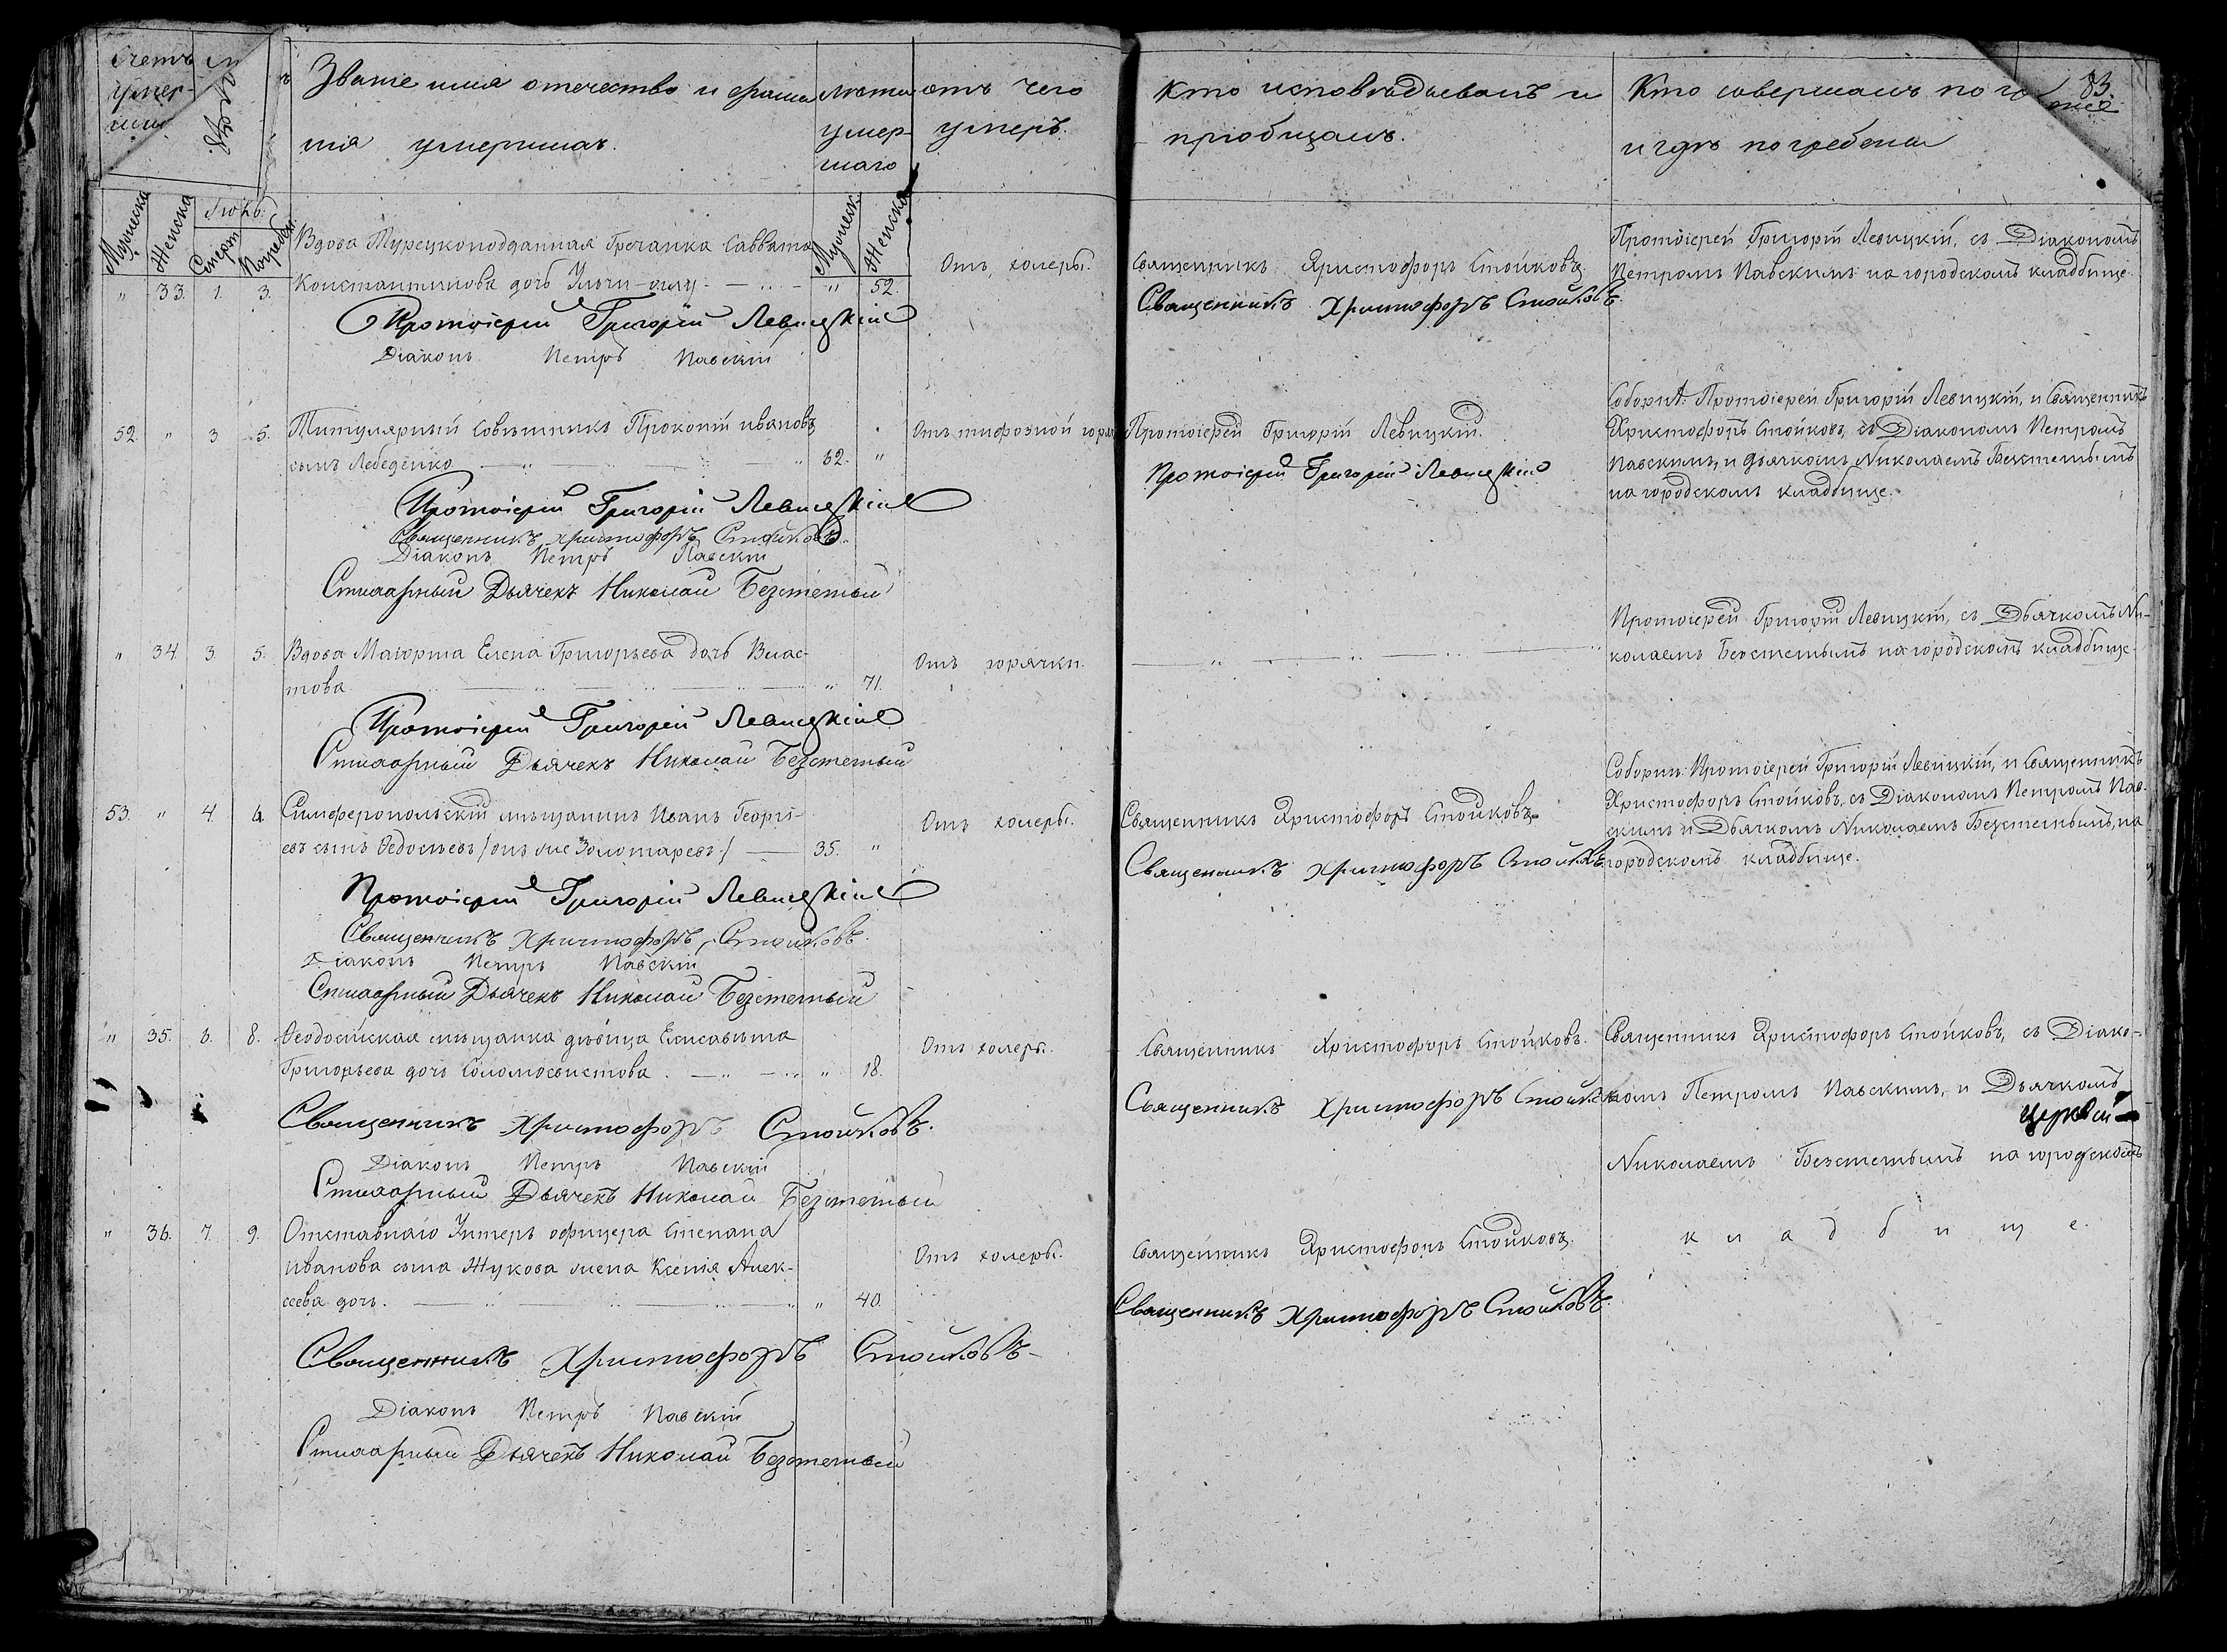 Счетъ
умер-
Званіе имя отечество и фами
лія умершихъ.
Лѣта
умер-
шаго
отъ чего
умеръ.
Кто исповѣдывалъ и
пріобщалъ.
Кто совершалъ
и гдѣ погребены
83.
Мужеска
Женска
Смерт
Погребен
Мужеск.
Женска
Вдова Турецкоподданная Гречанка Саввата
" 33. 1. 3. Константинова дочь " 52.
Отъ холеры.
Священникъ Христофоръ Стойковъ.
Священникъ Христофоръ Стойковъ.
Протоіерей Григорій Левицкій, съ Діакономъ
Петромъ Павскимъ на городскомъ кладбище.
Протоіерей Григорій Левицкій
Діаконъ Петръ Павскій
52. " 3 5. Титулярный Совѣтникъ Прокопій ивановъ
сынъ Лебеденко 62. "
Отъ тифозной горяч
Протоіерей Григорій Левицкій.
Протоіерей Григорій Левицкій
Протоіерей Григорій Левицкій, и Священникъ
Христофоръ Стойковъ, съ Діакономъ Петромъ
Павскимъ, и дьячкомъ Николаемъ Безсметнымъ
на городскомъ кладбище.
Протоіерей Григорій Левицкій
Священникъ Христофоръ Стойковъ.
Діаконъ Петръ Павскій
Стихарный Дьячекъ Николай Безсметный
" 34. 3. 5. Вдова Маіорша Елена Григорьева дочь Влас-
това " 71.
Отъ горячки.
Протоіерей Григорій Левицкій, съ Дьячкомъ Ни-
колаемъ Безсметнымъ на городскомъ кладбище.
Протоіерей Григорій Левицкій
Стихарный Дьячекъ Николай Безсметный
53. " 4. 6. Симферопольскій мѣщанинъ Иванъ Георгі-
евъ сынъ Ѳедосѣевъ /онъ же Золотаревъ./ 35. "
Отъ холеры.
Священникъ Христофоръ Стойковъ.
Священникъ Христофоръ Стойковъ
Соборнѣ: Протоіерей Григорій Левицкій, и Священникъ
Христофоръ Стойковъ, съ Діакономъ Петромъ Пав-
скимъ и Дьячкомъ Николаемъ Безсметнымъ, на
городскомъ кладбище.
Протоіерей Григорій Левицкій
Священникъ Христофоръ Стойковъ.
Діаконъ Петръ Павскій
Стихарный Дьячекъ Николай Безсметный
" 35. 6. 8. Ѳеодосійская мѣщанка дѣвица Елисавѣта
Григорьева дочь Соломосвистова. " 18.
Отъ холеры.
Священникъ Христофоръ Стойковъ.
Священникъ Христофоръ Стойков
Священникъ Христофоръ Стойковъ, съ Діако-
номъ Петромъ Павскимъ, и Дьячкомъ
Николаемъ Безсметнымъ на городскомъ
к л а д б и щ е.
Священникъ Христофоръ Стойковъ.
Діаконъ Петръ Павскій
Стихарный Дьячекъ Николай Безсметный
" 36. 7. 9. Отставнаго Унтеръ офицера Степана
Иванова сына Жукова жена Ксенія Алек-
сеева дочь. " 40.
Отъ холеры.
Священникъ Христофоръ Стойковъ.
Священникъ Христофоръ Стойковъ.
Священникъ Христофоръ Стойковъ
Діаконъ Петръ Павскій
Стихарный Дьячекъ Николай Безсметный